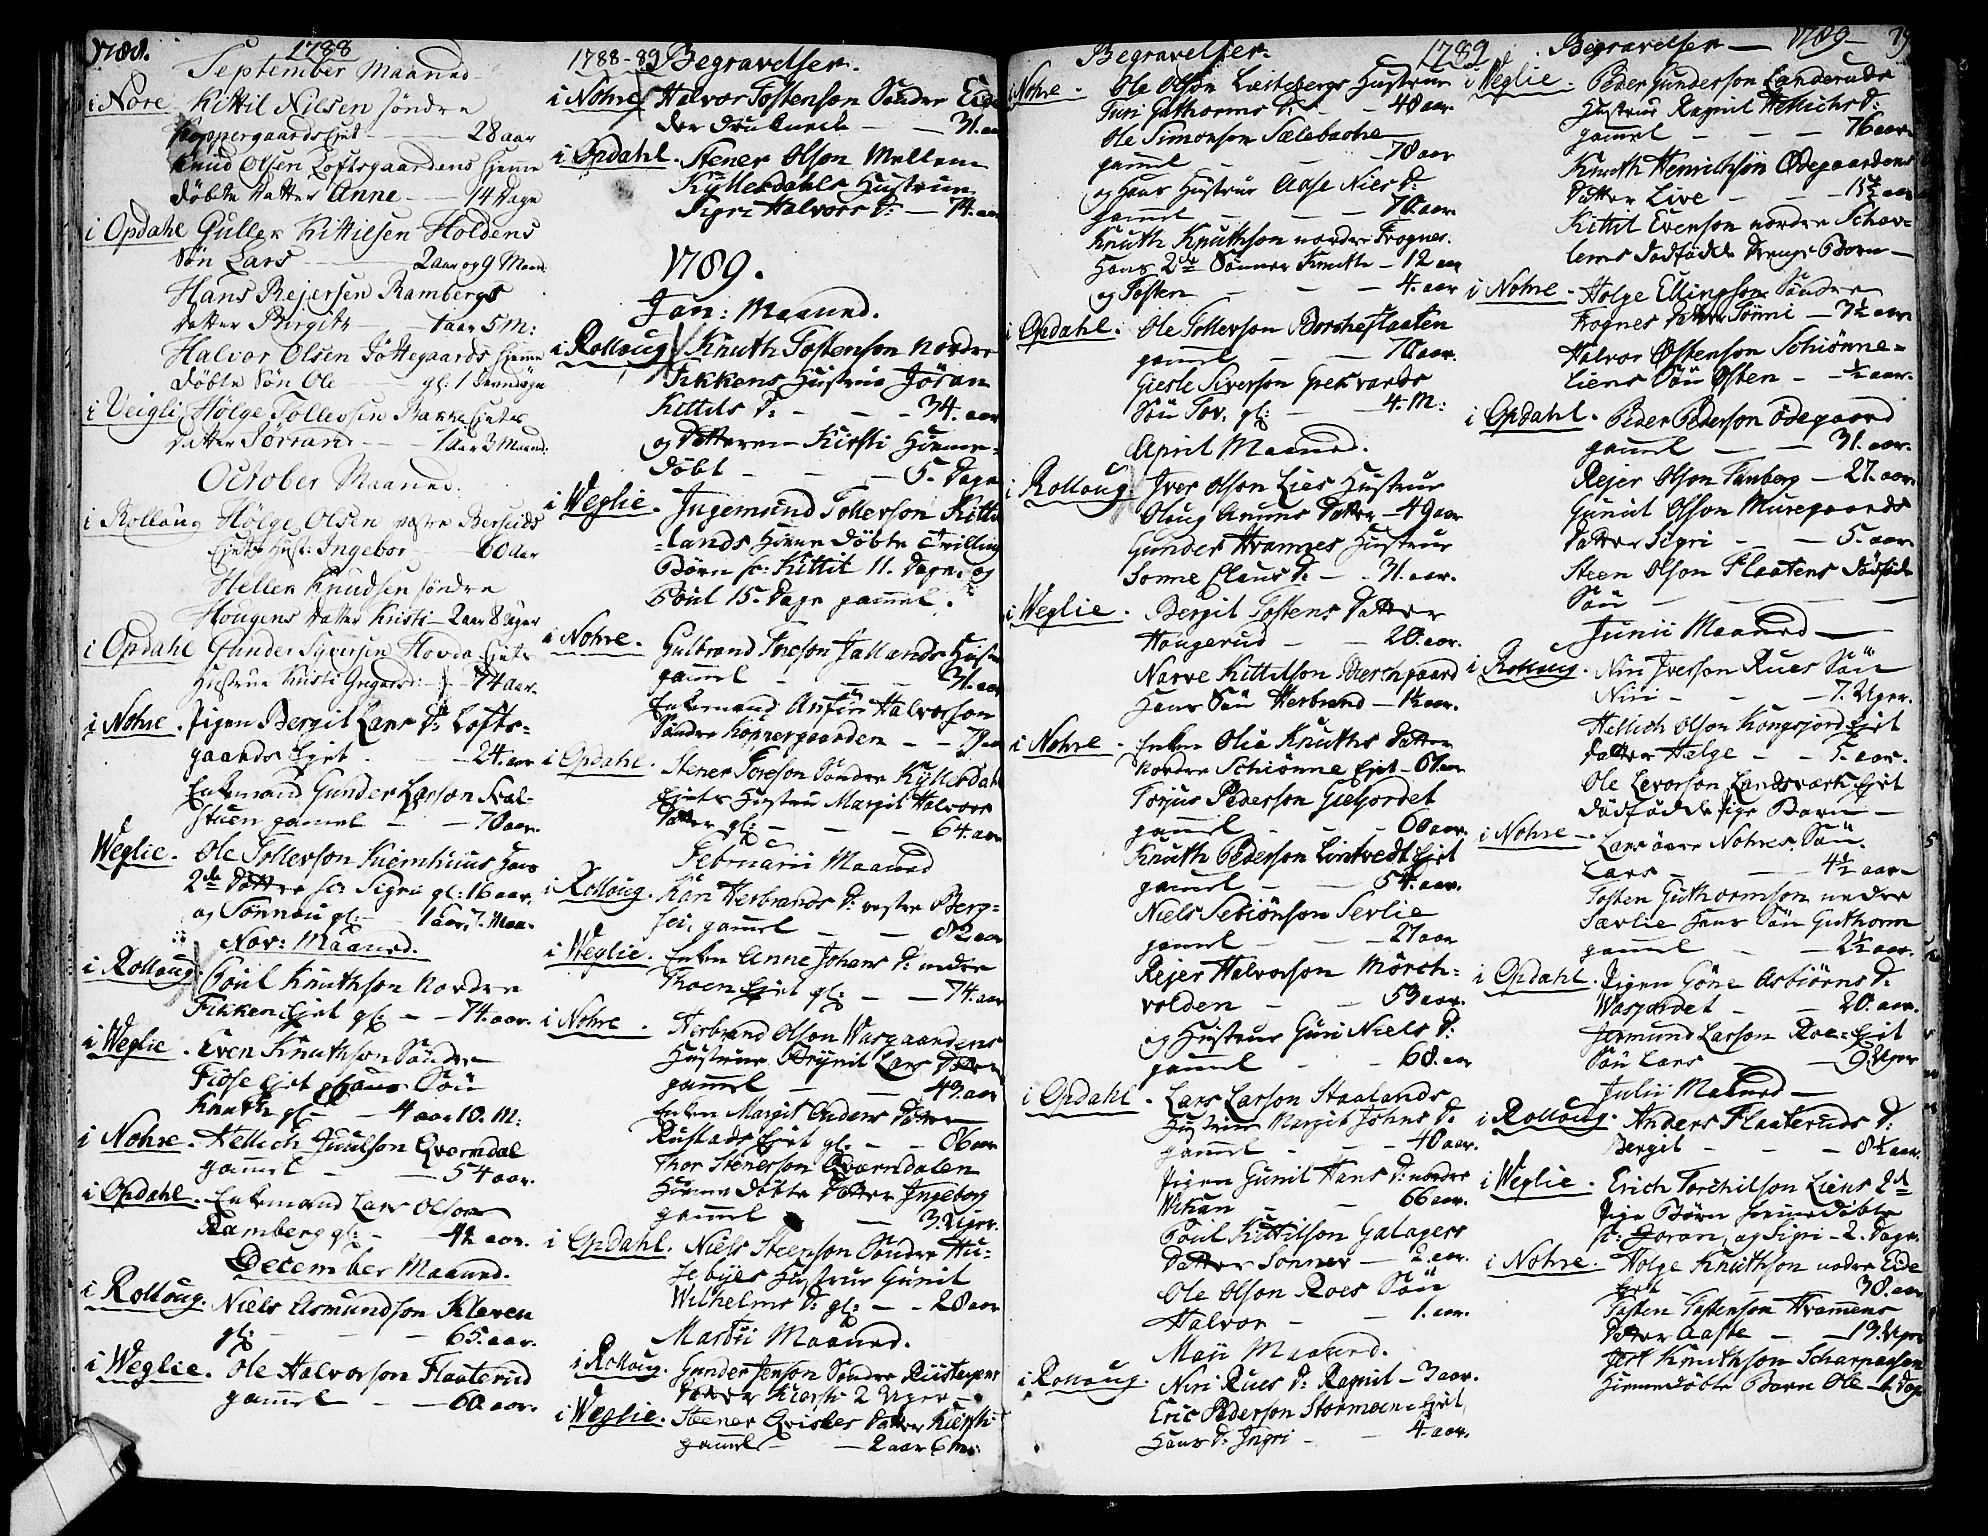 1788.
1788
September Maaned
i Nore Kittil Nilsen söndre
Koppergaards Ejet 28 aar
Knud Olsen Loftsgaardens hjeme
döbte datter Anne 14 dage
i Opdahl Gullek Kittilsen Holdens
Sön Lars 2 aar og 9 Maan
Hans Rejersen Rambergs
datter Birgith 1 aar 5 M:
Halvor Olsen Töftegaards hjeme
döbte Sön Ole gl: 1
i Veigli Hölge Tollevsen Bakke Ejets
datter Jörrand 1 aar 3 Maaned.
October Maaned.
i Rolloug Hölge Olsen östre Berseids
Ejets Hust: Ingebor 60 aar
Hellek Knudsen söndre
Hougens datter Kristi 2 aar 8 Uger
i Opdahl Gunder Syversen Hovda Ejets
Hustrue Kristi 74 aar.
i Nohre. Pigen Bergit Lars D: Lofts-
gaards Ejet 24. aar
Enkemand Gunder Larson Skal-
stuen gamel 70 aar.
Weglie. Ole Tollevson Kiemhuus hans
2de Döttre sc: Sigri gl: 16 aar.
og Sönnau gl: 1 aar 7. Maa.
Nov: Maaned.
i Rolloug. Poul Knuthson Nordre
Fikken Ejet gl: 74. aar.
i Weglie. Even Knuthson Söndre
Fiöse Ejet hans Sön
Knuth gl: 4 aar 10. M:
i Nohre. Hellich Juulson Qverndal
gamel 54 aar.
i Opdahl. Enkemand Lars Olson
Ramberg gl: aar.
December Maaned.
i Rolloug. Niels Asmundson Kleven
gl: 65. aar.
i Weglie. Ole Halvorson Flaaterud
gamel 60 aar.
1788-89 Begravelser.
i Nohre Halvor Tostenson Söndre Eide
der druknede 31. aar
i Opdahl. Stener Olson Mellem
Kyllesdahls Hustrue
Sigri Halvors D: 74. aar
1789.
Jan: Maaned.
i Rolloug Knuth Tostenson Nordre
Fikkens Hustrue Jöran
Kittils D: 34. aar
og Datteren Kirsti Hieme-
döbt 5. Dage
i Weglie. Ingemund Tollevson Kitti
-lands Hieme döbte Tvilling
Börn sc: Kittil 11. Dage. og
Poul 15. Dage gamel.
i Nohre. Gulbrand Toreson Jallands
gamel 31. aar
Enkemand Anfin Halvorson
Söndre Koppergaarden
i Opdahl. Stener Toreson Söndre Kyllesdahl
Ejets Hustru Margit Halvors
Datter gl: 64. aar
Februarii Maaned
i Rolloug. Kari Herbrands D: vestre Berg-
sei, gamel 82. aar
i Weglie. Enken Anne Johans D: nedre
Thoen Ejet gl: 74. aar
i Nohre. Herbrand Olson Wasgaardens
Hustrue Brynil Lars Datter
gamel 49. aar
Enken Margit Endens Datter
Rustads Ejet gl: 86 aar
Thor Stenerson Qværndalen
Hieme döbte Datter Ingeborg
gamel 3. Uger.
i Opdahl. Niels Steenson Söndre Hu-
sebyes Hustrue Gunil
Wilhelms D: gl: 28 aar
Martii Maaned.
i Rolloug. Gunder Jenson Söndre Riisteigens
Datter Kiersti 2 Uger
i Weglie. Steener Qvisles Datter Kiersti
gamel 2 aar 6 Mr:
Begravelser.
1789
i Nohre. Ole Olson Liösebergs Hustrue
Turi Guthorms D: 40 aar.
Ole Simonson Sælabache
gamel 78 aar
og Hans Hustrue Aase Niels D:
gamel 70. aar
Knuth Knuthson nordre Frognes.
Hans 2de Sönner Knuth 12 aar
og Tosten 4. aar
i Opdahl. Ole Tollevson Borchestaaten
gamel 70 aar.
Giesle Siverson Grefvards
Sön Tov. gl: 4. M:
April Maaned.
i Rolloug. Iver Olson Lies Hustrue
Oloug Amuns Datter 49 aar
Gunder Hvammes Hustrue
Sonne Claus D: 31. aar.
i Weglie. Bergit Tostens Datter
Haugerud 20. aar.
Narve Kittilson Berchgaard
Hans Sön Herbrand aar.
i Nohre. Enken Olia Knuths Datter
Nordre Schiönne Ejet aar
Torjus Pederson Giegjordet
gamel 60 aar.
Knuth Pederson Lintvedt Ejet
gamel 54. aar.
Niels Sebiönson Sevlie
gamel 27 aar
Rejer Halvorson Mörch-
volden 53 aar.
og Hustrue Guri Niels D:
gamel 68. aar
i Opdahl. Lars Larson Staalands
Hustrue Margit Johns D.
gamel 40 aar.
Pigen Gunil Hans D: nordre
Wihan 66 aar.
Poul Kittilson Galagers
Datter Sonner 2. aar.
Ole Olson Roes Sön
Halvor 1. aar.
Maii Maaned.
i Rolloug. Niri Rues D: Ragnil 3 aar.
Eric Pederson Stormoen Ejet
Hans D: Ingri 4. aar.
Begravelser 1789
i Weglie. Peder Gunderson Landeruds
Hustrue Ragnil Hellichs D:
gamel 76 aar
Knuth Henrichson Ödegaardens
Datter Live 15½ aar
Kittil Evenson nordre Schav-
lems Dödfödde Drenge Barn
i Nohre. Holge Ellingson Söndre
Frognes Datter Sönne 3½ aar.
Halvor Östenson Schiönne-
Liens Sön Östen ½ aar.
i Opdahl. Peder Pederson Ödegaard
gamel 31. aar.
Rejer Olson Tanberg 27. aar.
Gunul Olson Muregaards
Datter Sigri 5. aar.
Steen Olson Flaatens Dödföde
Sön
Junii Maaned
i Rolloug. Niri Iverson Rues Sön
Niri 7. Uger.
Hellich Olson Kongsjord Ejet
Datter Helge 5. aar.
Ole Levorson Landsværk Ejet
Dödfödde Pige Barn
i Nohre. Lars övre Nohres Sön.
Lars 4½ aar
Tosten Guthormson nedre
Sævlie Hans Sön Guthorm
gamel 2½ aar.
i Opdahl. Pigen Göne Asbiörns D:
Wasjordet 20. aar.
Jermund Larson Roe Ejet
Sön Lars 9. Uger
Julii Maaned
i Rolloug. Anders Flaateruds D:
Bergit 8½ aar.
i Weglie. Erich Torchilson Liens 2de
Pige Börn hiemedöbte
sc: Joran, og Sigri 2. Dage.
i Nohre. Holge Knuthson nedre Eide
Ejet 38. aar
Tosten Tostenson Hvamens
Datter Aaste 19. Uger
Jert Knuthson Scharpaasen
Hiemedöbte Barn Ole 1. Dag